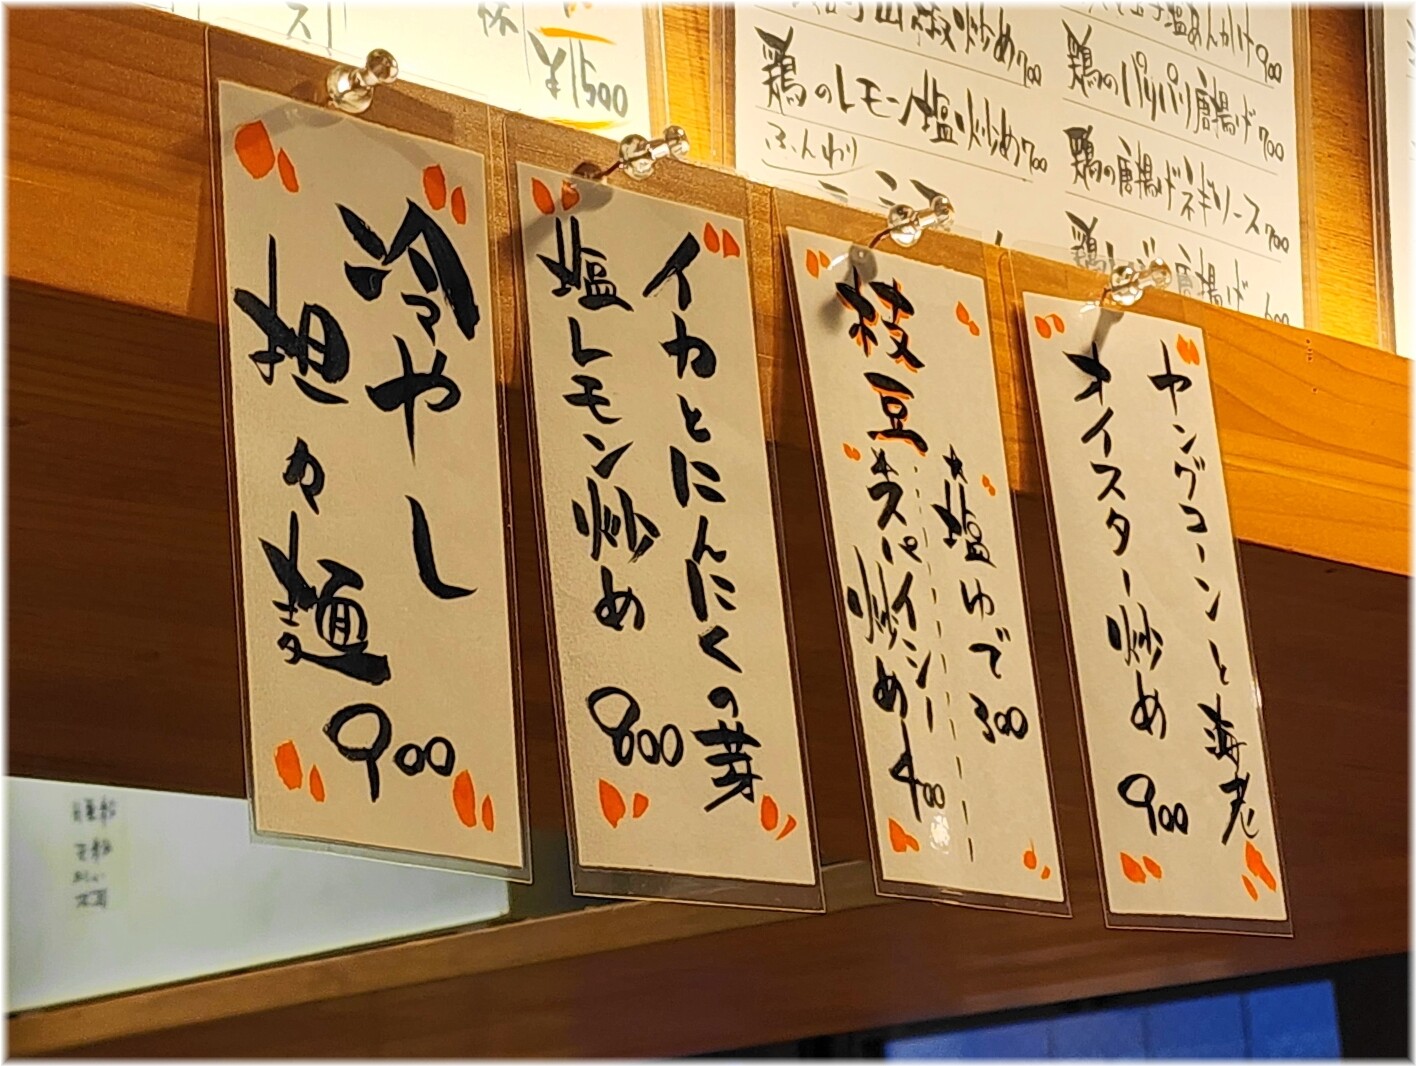 冷やし
担々麺
900
イカとにんにくの芽
塩レモン炒め
800
枝豆
★塩ゆで 300
★スパイシー炒め 400
ヤングコーンと海老
オイスター炒め
900
¥1500
炒め 700
鶏のレモン塩炒め 700
ふんわり
塩あんかけ 900
鶏のパリパリ唐揚げ 700
鶏の唐揚げネギソース 700
唐揚げ 600